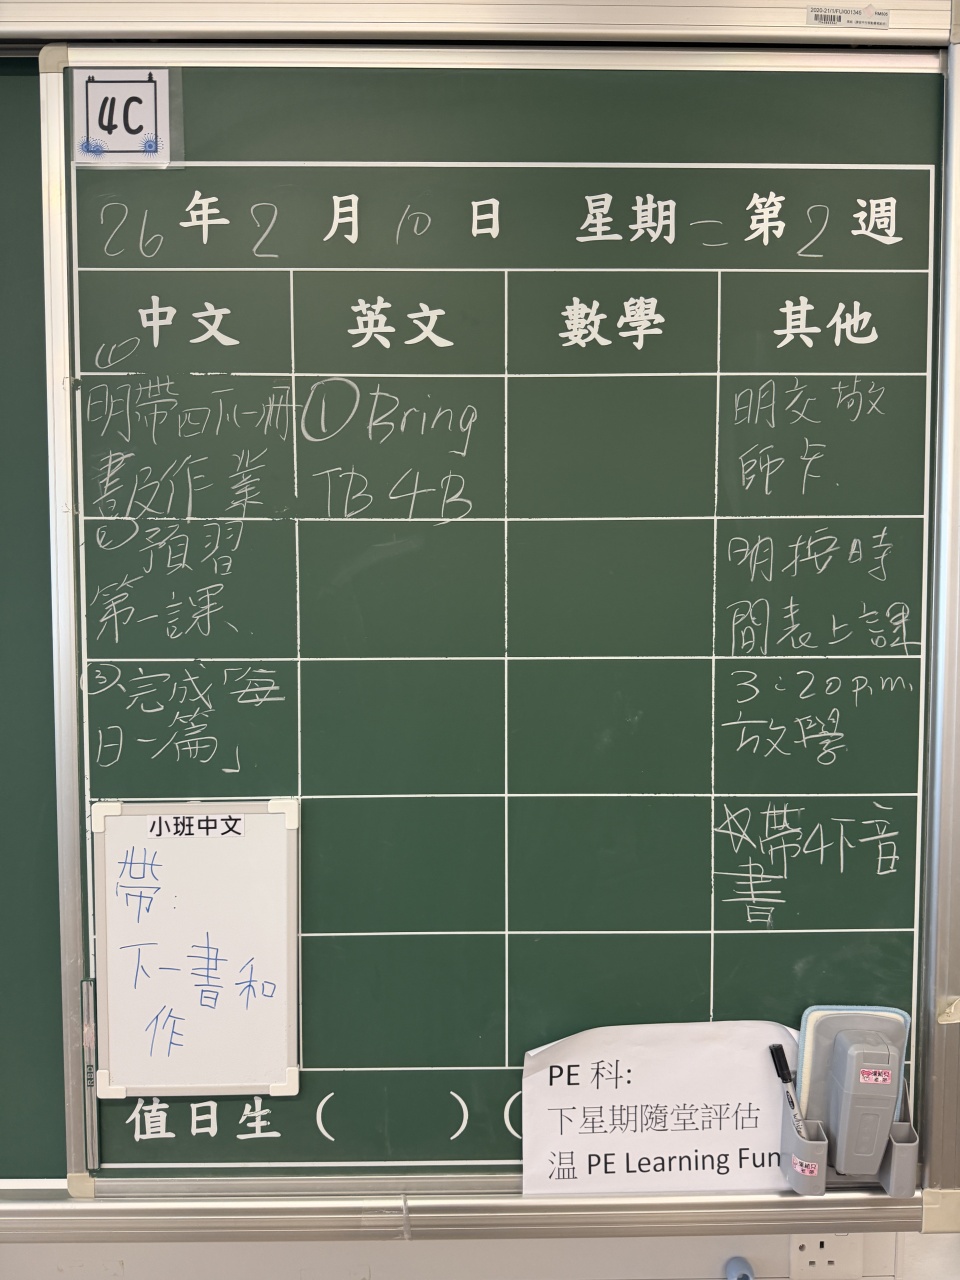 2020-21/1/FU/001345
RM505
4C
26年2月10日 星期二 第2週
中文
英文
數學
其他
(1)
明帶四下一冊
書及作業
② 預習
第一課.
③、完成「每
日一篇」
① Bring
TB 4B
明交敬
師卡.
明按時
間表上課
3:20 p.m.
放學
☆帶4下音
書
小班中文
帶:
下一書和
作
值日生 ( ) (
PE 科:
下星期隨堂評估
温 PE Learning Fun